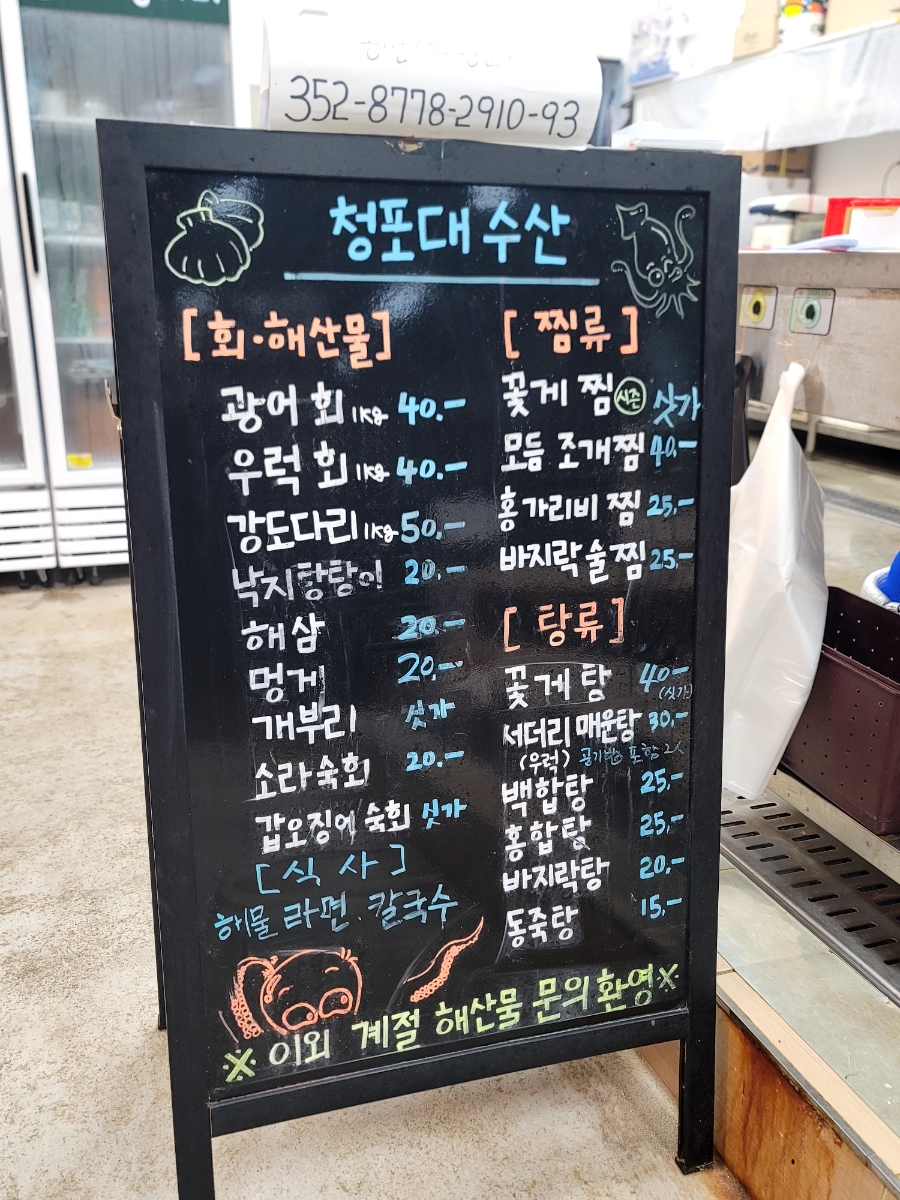 352-8778-2910-93
청포대 수산
[회·해산물]
광어 회 1kg 40.-
우럭 회 1kg 40.-
강도다리 1kg 50.-
낙지탕탕이 20.-
해삼 20.-
멍게 20.-
개부리 싯가
소라숙회 20.-
갑오징어 숙회 싯가
[식 사]
해물 라면. 칼국수
[찜류]
꽃게 찜 시즌 싯가
모듬 조개찜 40.-
홍가리비 찜 25.-
바지락술찜 25.-
[탕류]
꽃게탕 40.-
(싯가)
서더리 매운탕 30.-
(우럭) 공기밥 포함 2人
백합탕 25.-
홍합탕 25.-
바지락탕 20.-
동죽탕 15.-
※ 이외 계절 해산물 문의 환영※